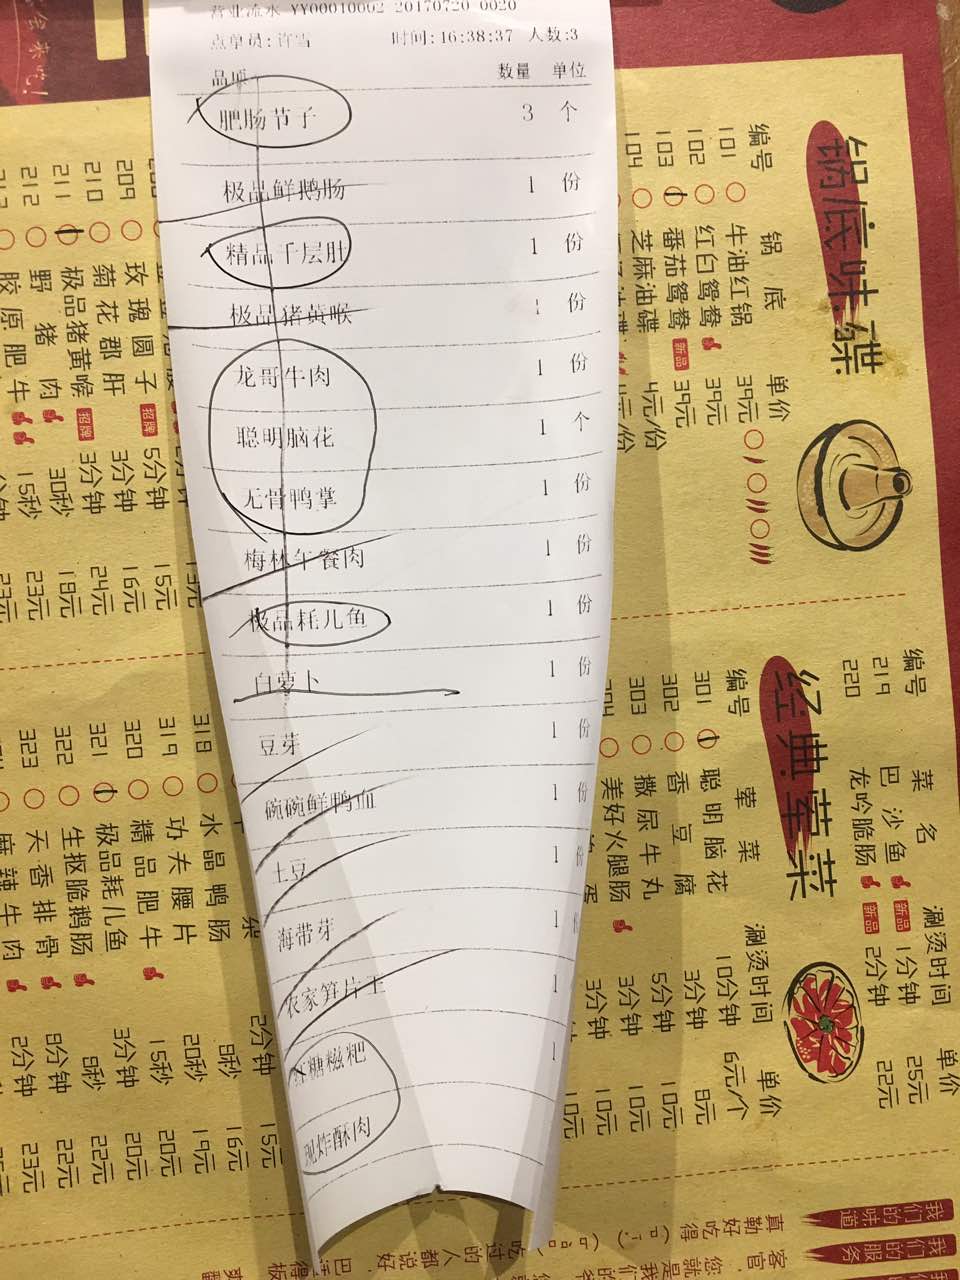 营业流水 YY00010002 20170720 0020
点单员:许雪 时间:16:38:37 人数:3
品项 数量 单位
肥肠节子 3 个
极品鲜鹅肠 1 份
精品千层肚 1 份
极品猪黄喉 1 份
龙哥牛肉 1 份
聪明脑花 1 个
无骨鸭掌 1 份
梅林午餐肉 1 份
极品耗儿鱼 1 份
白萝卜 1 份
豆芽 1 份
碗碗鲜鸭血 1 份
土豆 1 份
海带芽 1 份
农家笋片王 1
红糖糍粑 1
现炸酥肉
锅底味碟
编号 锅底 单价
101 牛油红锅 39元
102 红白鸳鸯 39元
103 番茄鸳鸯 新品 39元
104 芝麻油碟 4元/份
经典荤菜
编号 菜名 涮烫时间 单价
219 巴沙鱼 新品 1分钟 25元
220 龙吟脆肠 新品 2分钟 22元
编号 荤菜 涮烫时间 单价
301 聪明脑花 10分钟 6元/个
302 香豆腐 3分钟 8元
303 撒尿牛丸 5分钟 10元
304 美好火腿肠 3分钟 10元
3分钟 10元
209 玫瑰圆子 招牌 5分钟 15元
210 菊花郡肝 3分钟 16元
211 极品猪黄喉 招牌 3分钟 24元
212 野猪肉 30秒 18元
胶原肥牛 15秒 23元
318 水晶鸭肠 2分钟 15元
319 功夫腰片 9秒 16元
320 精品肥牛 20秒 19元
321 极品耗儿鱼 15秒 20元
322 生抠脆鹅肠 3分钟 20元
323 天香排骨 9秒 22元
麻辣牛肉 8分钟 22元
2分钟 23元
我们的味道
我们的服务
真勒好吃得
吃过的人都说好
客官,您就是我